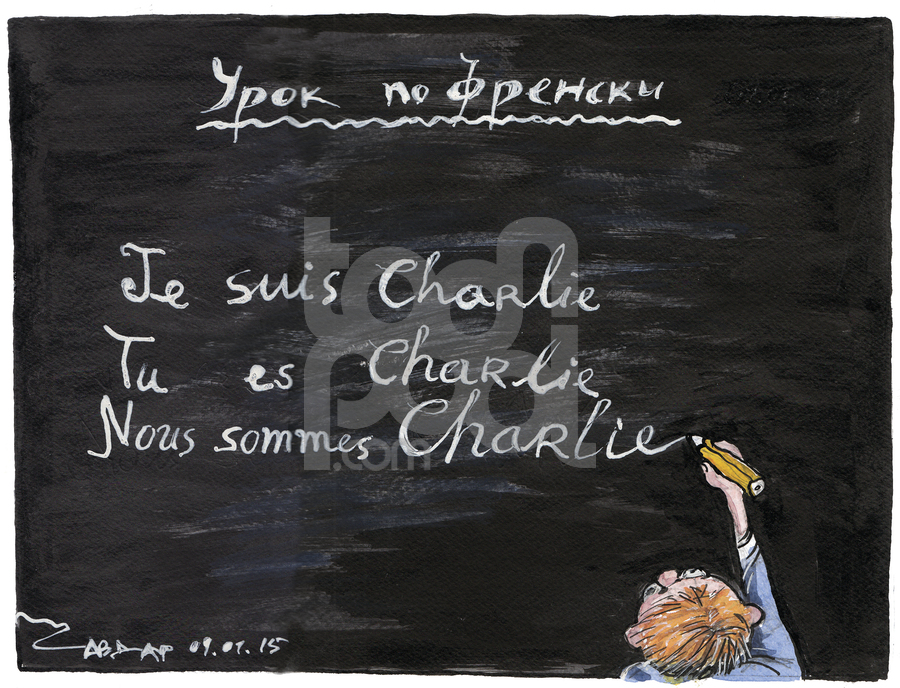 Урок по Френски
Je suis Charlie
Tu es Charlie
Nous sommes Charlie
toonpool
.com
09.01.15